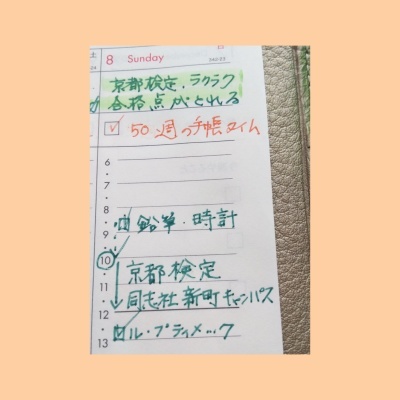 土 8 Sunday
京都検定、ラクラク
合格点がとれる
50週の手帳タイム
6
7
8
鉛筆・時計
9
10
京都検定
11
同志社 新町キャンパス
12
ル・プチメック
13